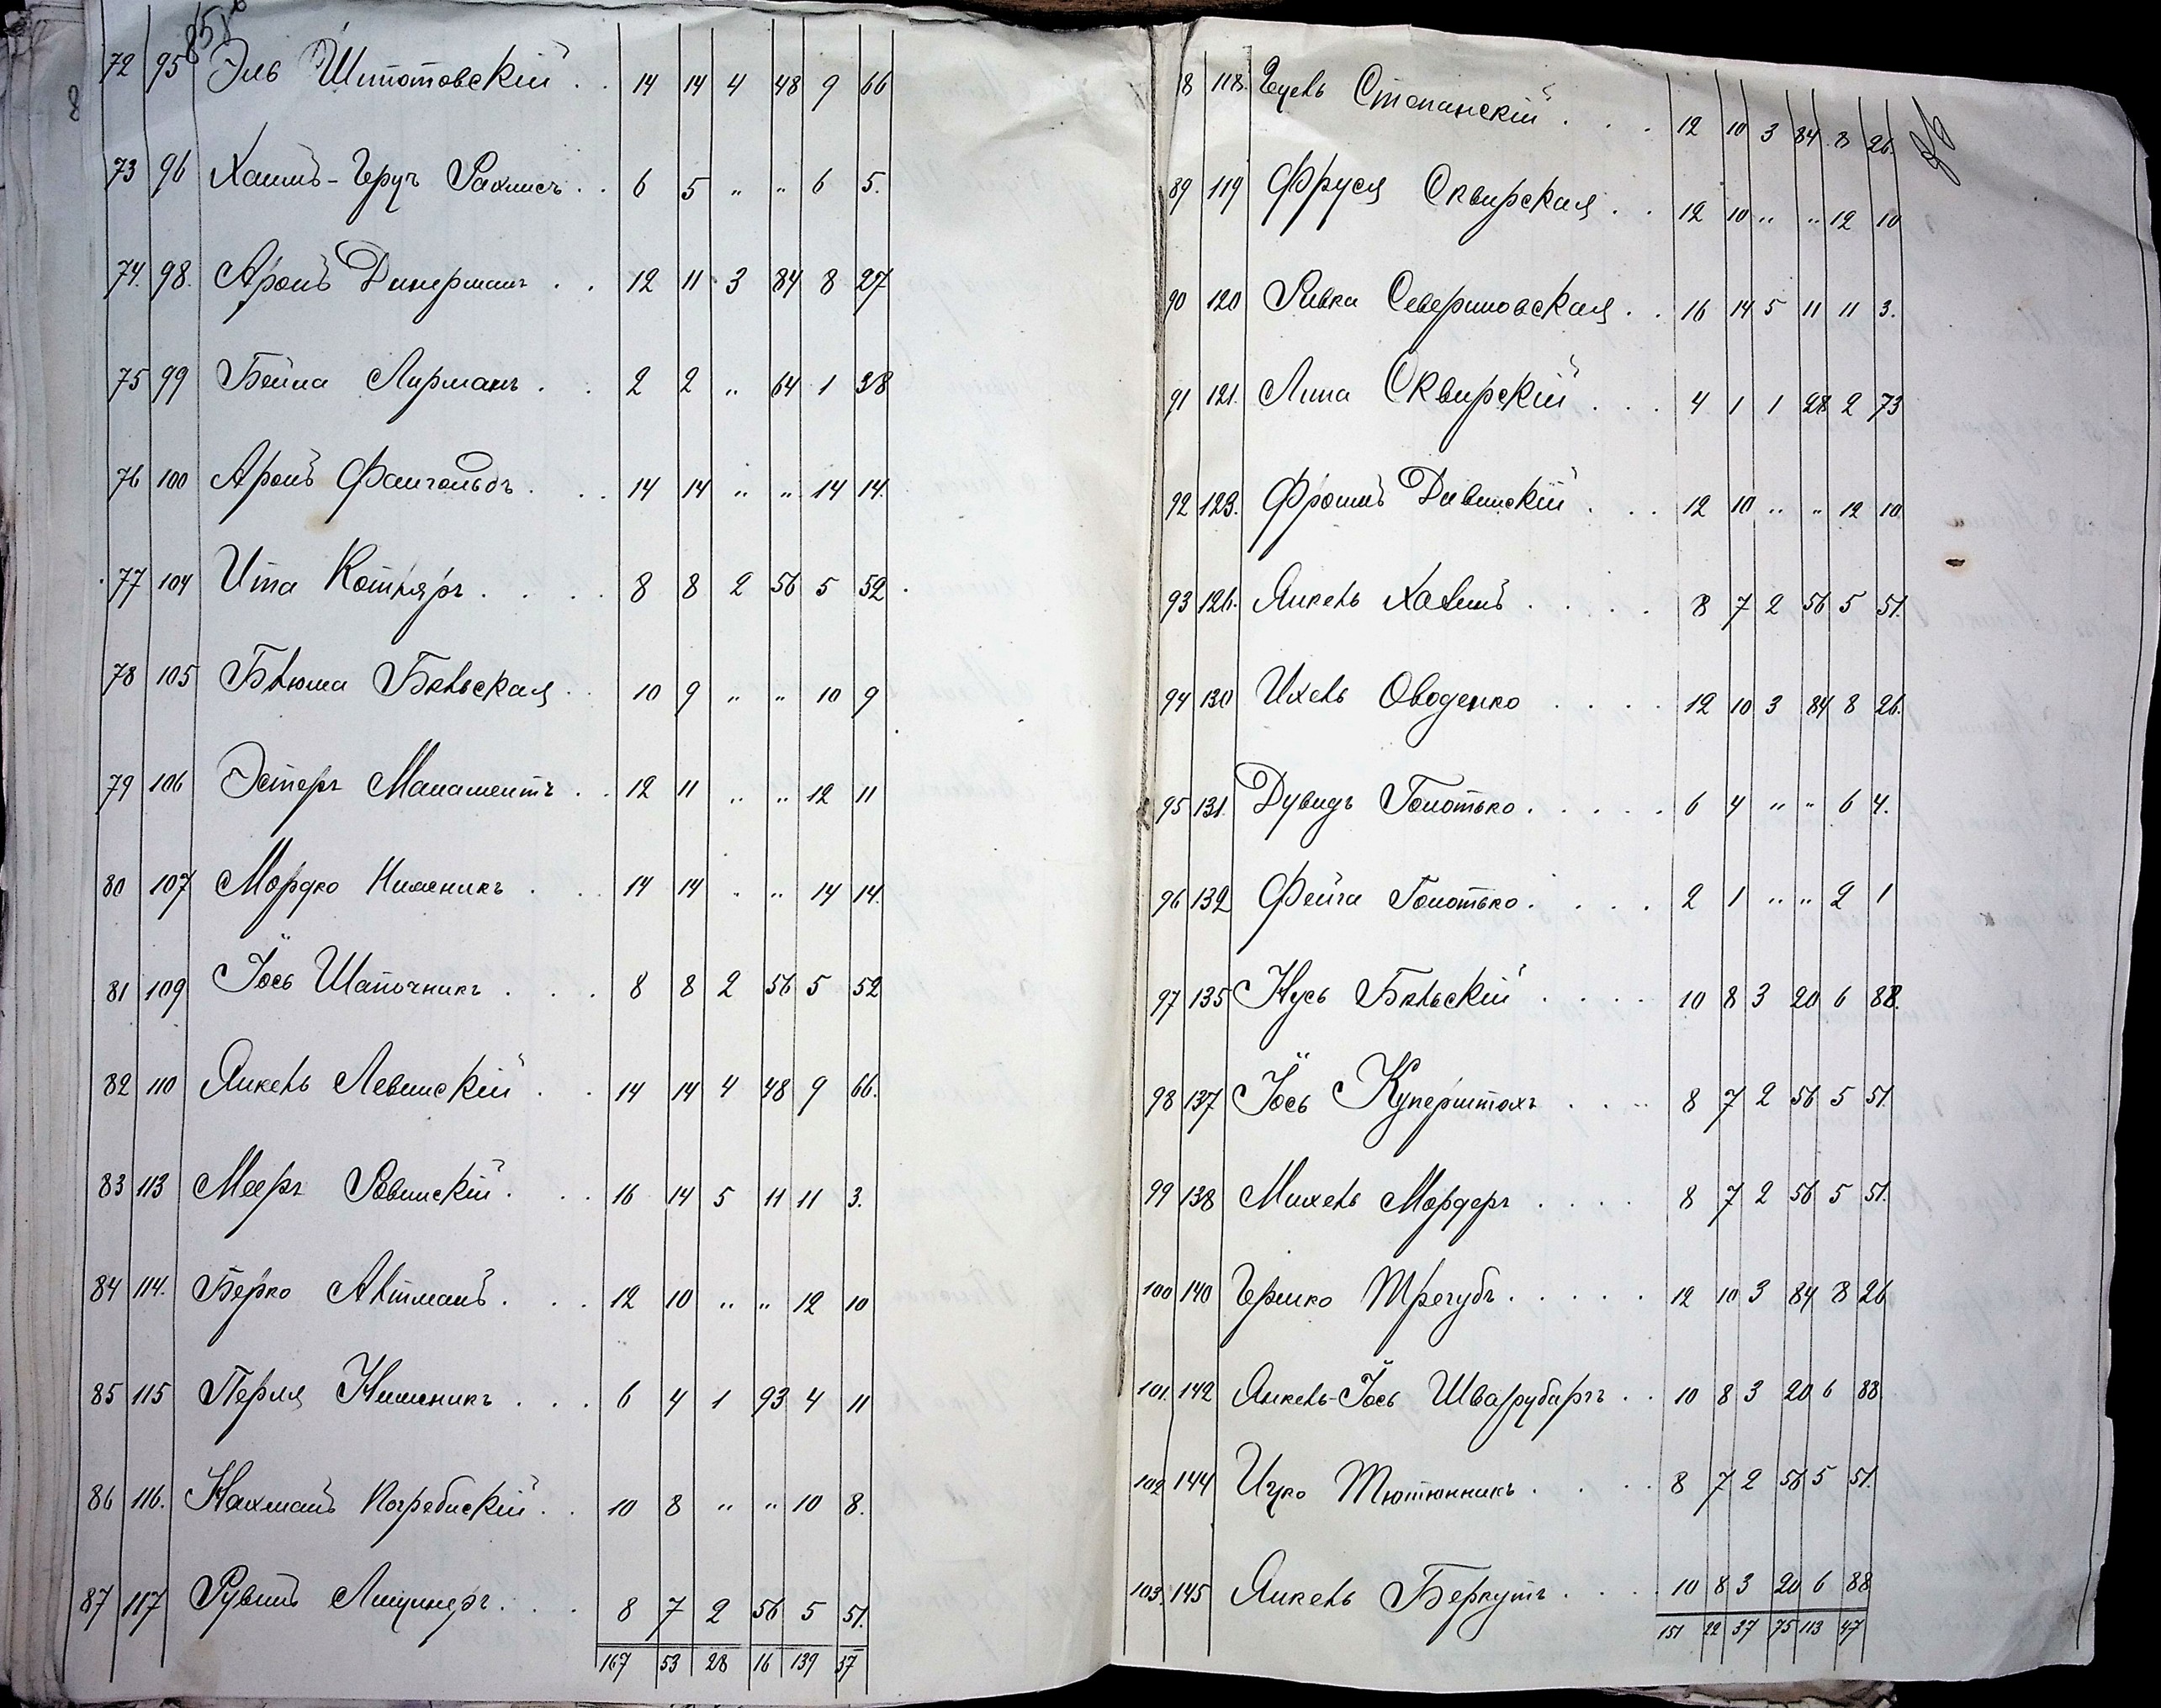 72 95 Эль Шпотовскій . . 14 14 4 48 9 66
8
73 96 Хаимъ-Герцъ Рахлисъ . . 6 5 „ „ 6 5.
74. 98. Аронъ Динерманъ . . 12 11 3 84 8 27
75 99 Бейла Лирманъ . . 2 2 „ 64 1 38
76 100 Аронъ Фангольдъ . . 14 14 „ „ 14 14.
77 104 Ита Котляръ . . . . 8 8 2 56 5 52
78 105 Блюма Бѣльская . . 10 9 „ „ 10 9
79 106 Эстеръ Маламентъ . . 12 11 „ „ 12 11
80 107 Мордко Нижникъ . . 14 14 „ „ 14 14.
81 109 Іось Шапочникъ . . . 8 8 2 56 5 52
82 110 Янкель Левинскій . . 14 14 4 48 9 66.
83 113 Мееръ Ровинскій . . . 16 14 5 11 11 3.
84 114. Берко Альтманъ . . . 12 10 „ „ 12 10
85 115 Перля Нижникъ . . . 6 4 1 93 4 11
86 116. Нахманъ Погребискій . . 10 8 „ „ 10 8.
87 117 Рувинъ Лицинеръ . . . 8 7 2 56 5 51.
167 53 28 16 139 37
8 118. Степанскій . . . 12 10 3 84 8 26.
89 119 Фруся Сквирская . . 12 10 „ „ 12 10
90 120 Ривка Севериновская . . 16 14 5 11 11 3.
91 121. Липа Сквирскій . . . 4 1 1 28 2 73
92 123. Фроимъ Дивинскій . . . 12 10 „ „ 12 10
93 126. Янкель Хаимъ . . . . 8 7 2 56 5 51.
94 130 Ихель Оводенко . . . . 12 10 3 84 8 26.
95 131. Дувидъ Голотько . . . . . 6 4 „ „ 6 4.
96 132 Фейга Голотько . . . . 2 1 „ „ 2 1
97 135 Нусь Бѣльскій . . . . 10 8 3 20 6 88.
98 137 Іось Куперштохъ . . . 8 7 2 56 5 51.
99 138 Михель Мордеръ . . . . 8 7 2 56 5 51.
100 140 Гершко Трегубъ . . . . . 12 10 3 84 8 26
101. 142 Янкель-Іось Шварцбургъ . . 10 8 3 20 6 88
102 144 Ицко Тютюнникъ . . . . 8 7 2 56 5 51.
103. 145 Янкель Беркутъ . . . . 10 8 3 20 6 88
151 22 37 75 113 47